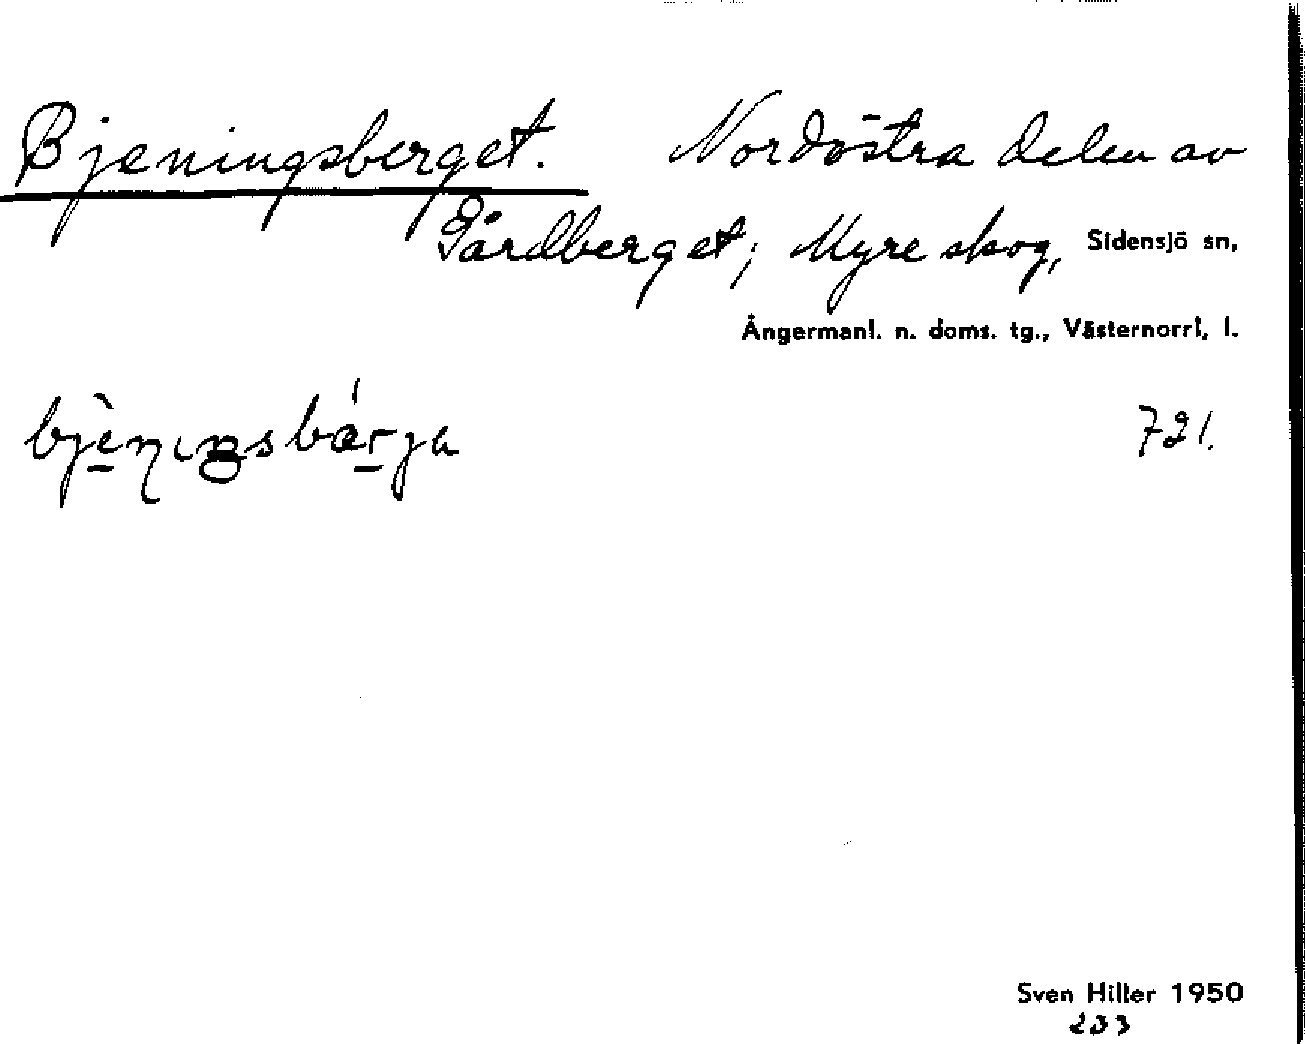 Bjeningsberget. Nordöstra delen av
Gårdberget; Myre skog, Sidensjö sn,
Ångermanl. n. doms. tg., Västernorrl. l.
721.
Sven Hiller 1950
233